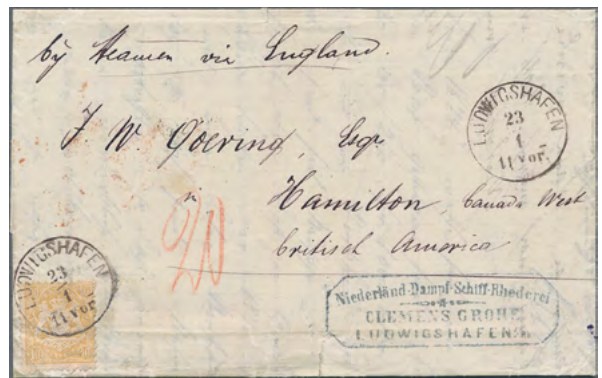 by steamer via England.
LUDWIGSHAFEN
23
1
11 Vor.
J. W. Goering, Esqr.
in
Hamilton, Canada West
british America
20
LUDWIGSHAFEN
23
1
11 Vor
Niederländ-Dampf-Schiff-Rhederei
CLEMENS GROHE
LUDWIGSHAFEN